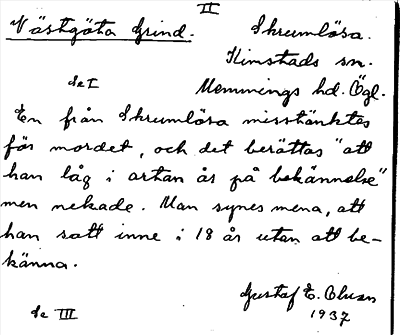 II
Västgöta Grind. Skrumlösa.
Kimstads sn.
Se I Memmings hd. Ögl.
En från Skrumlösa misstänktes
för mordet, och det berättas "att
han låg i artan år på bekännelse"
men nekade. Man synes mena, att
han satt inne i 18 år utan att be-
känna.
Gustaf E. Olsson
Se III 1937